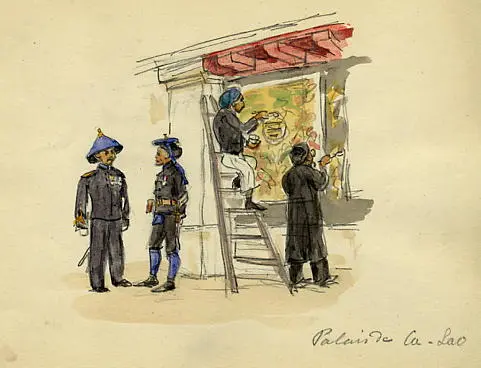 Palais de Ca-Lao